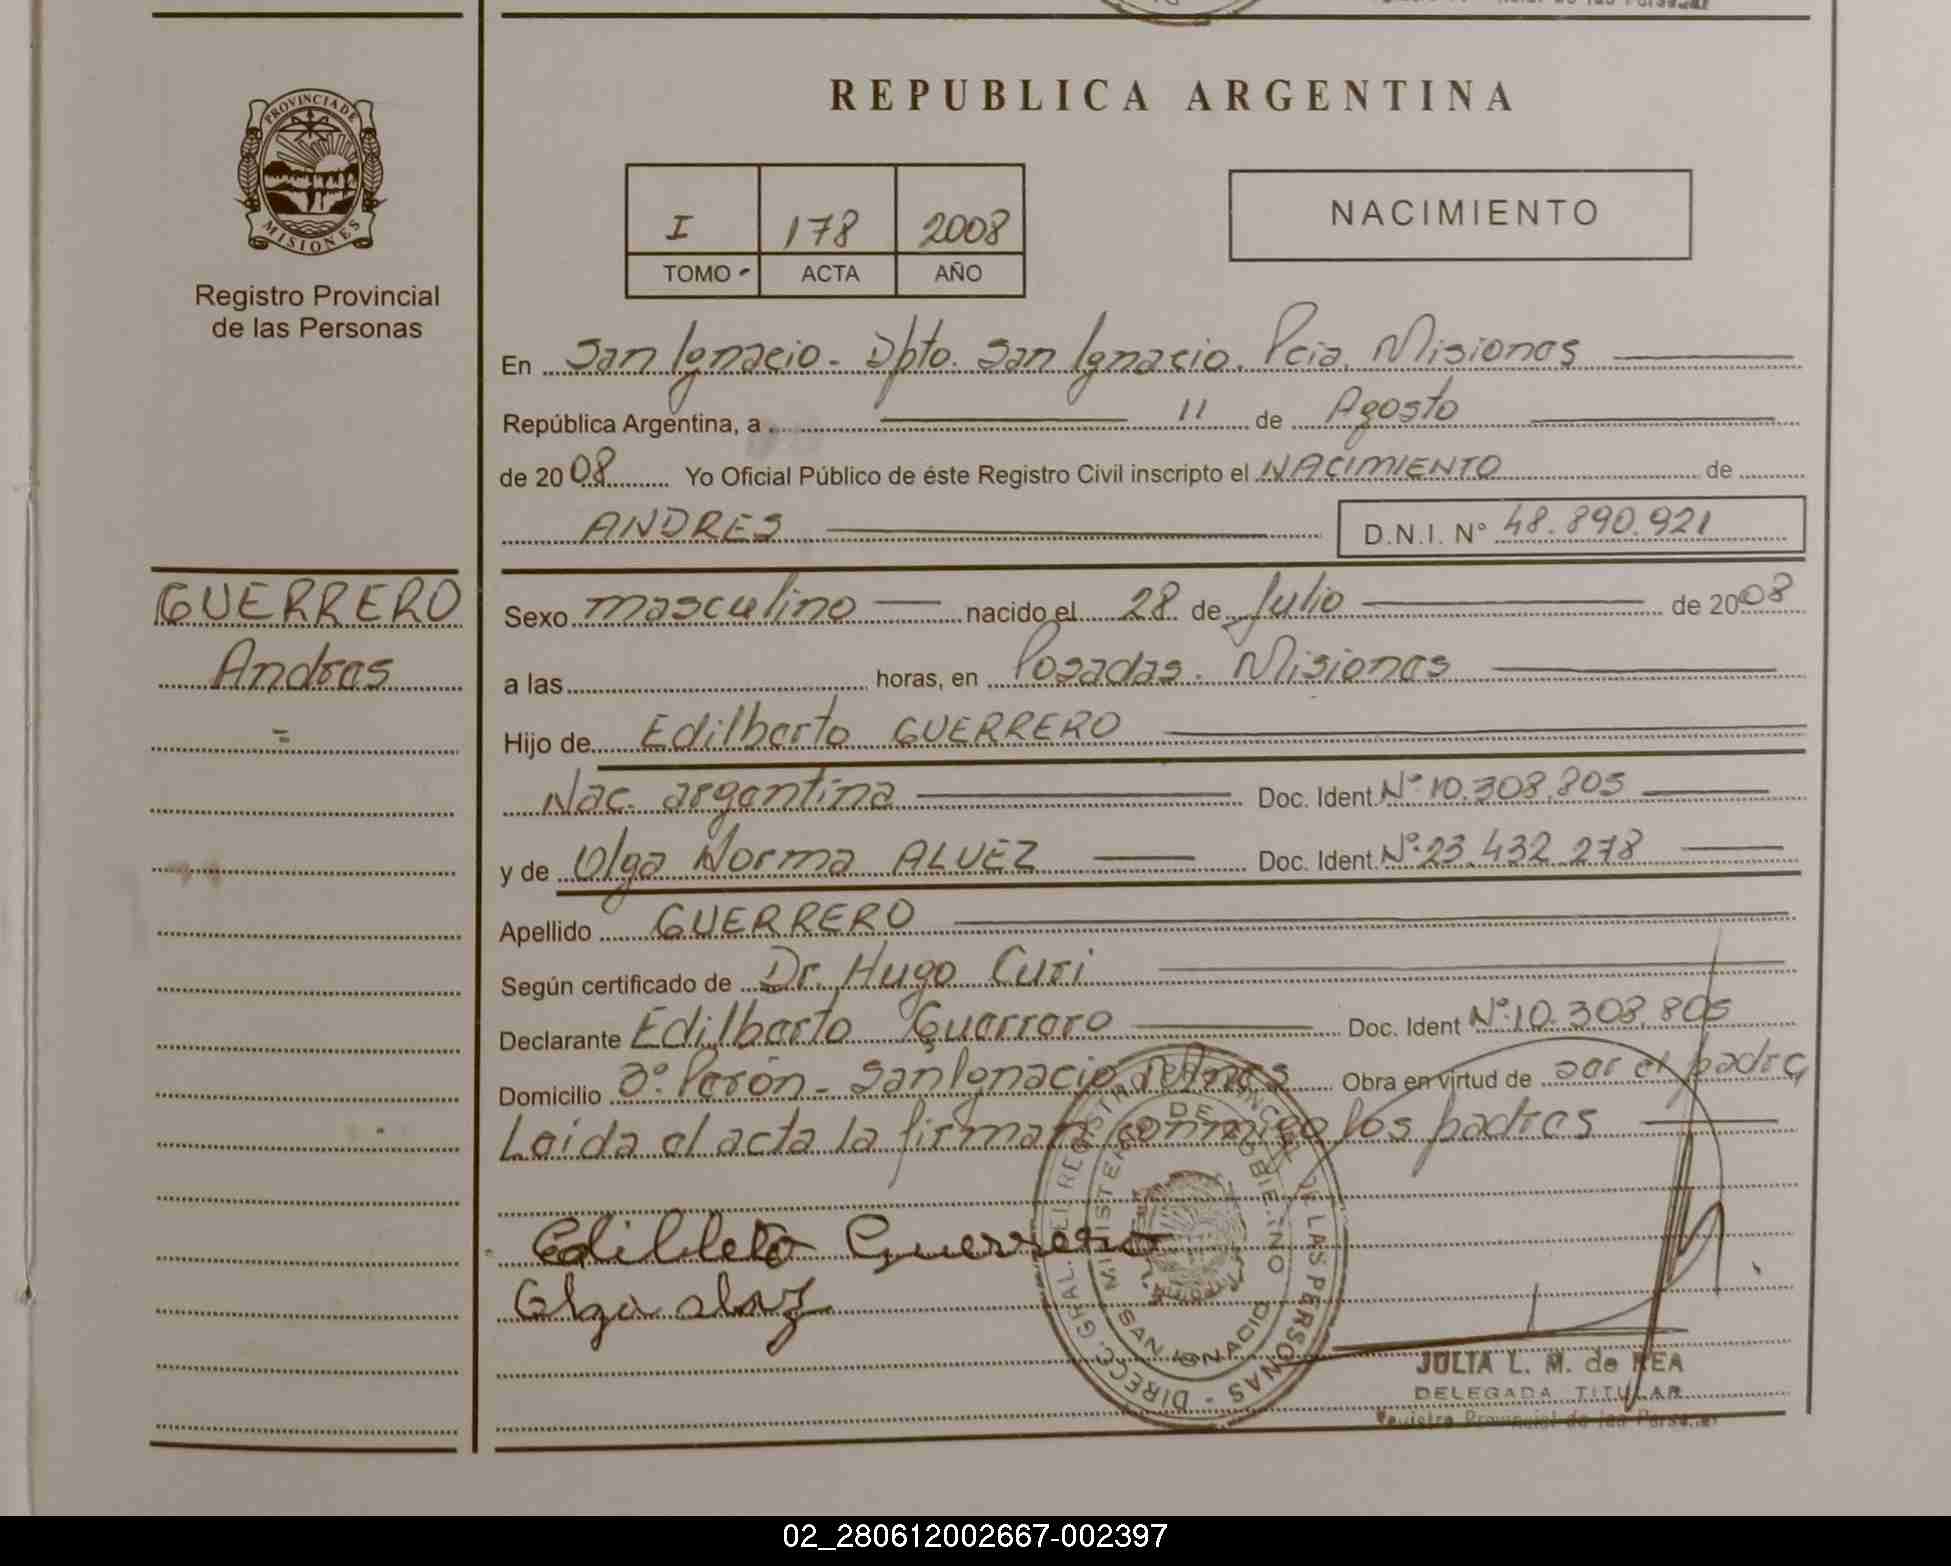 REPUBLICA ARGENTINA
PROVINCIA DE
MISIONES
Registro Provincial
de las Personas
I 178 2008
TOMO ACTA AÑO
NACIMIENTO
En San Ignacio - Dpto. San Ignacio. Pcia. Misiones
República Argentina, a 11 de Agosto
de 2008 Yo Oficial Público de éste Registro Civil inscripto el NACIMIENTO de
ANDRES D.N.I. N° 48.890.921
GUERRERO
Andres
=
Sexo masculino nacido el 28 de Julio de 2008
a las horas, en Posadas. Misiones
Hijo de Edilberto GUERRERO
Nac. argentina Doc. Ident N° 10.308.805
y de Olga Norma ALVEZ Doc. Ident. N° 23.432.278
Apellido GUERRERO
Según certificado de Dr. Hugo Curi
Declarante Edilberto Guerrero Doc. Ident N° 10.308.805
Domicilio 3° Perón - San Ignacio Obra en virtud de ser el padre
Leida el acta la firman conmigo los padres
Edilberto Guerrero
Olga
DIRECC. GRAL. DEL REGISTRO PROVINCIAL DE LAS PERSONAS
MINISTERIO DE GOBIERNO
SAN IGNACIO
JULIA L. M. de REA
DELEGADA TITULAR
Registro Provincial de las Personas
02_280612002667-002397